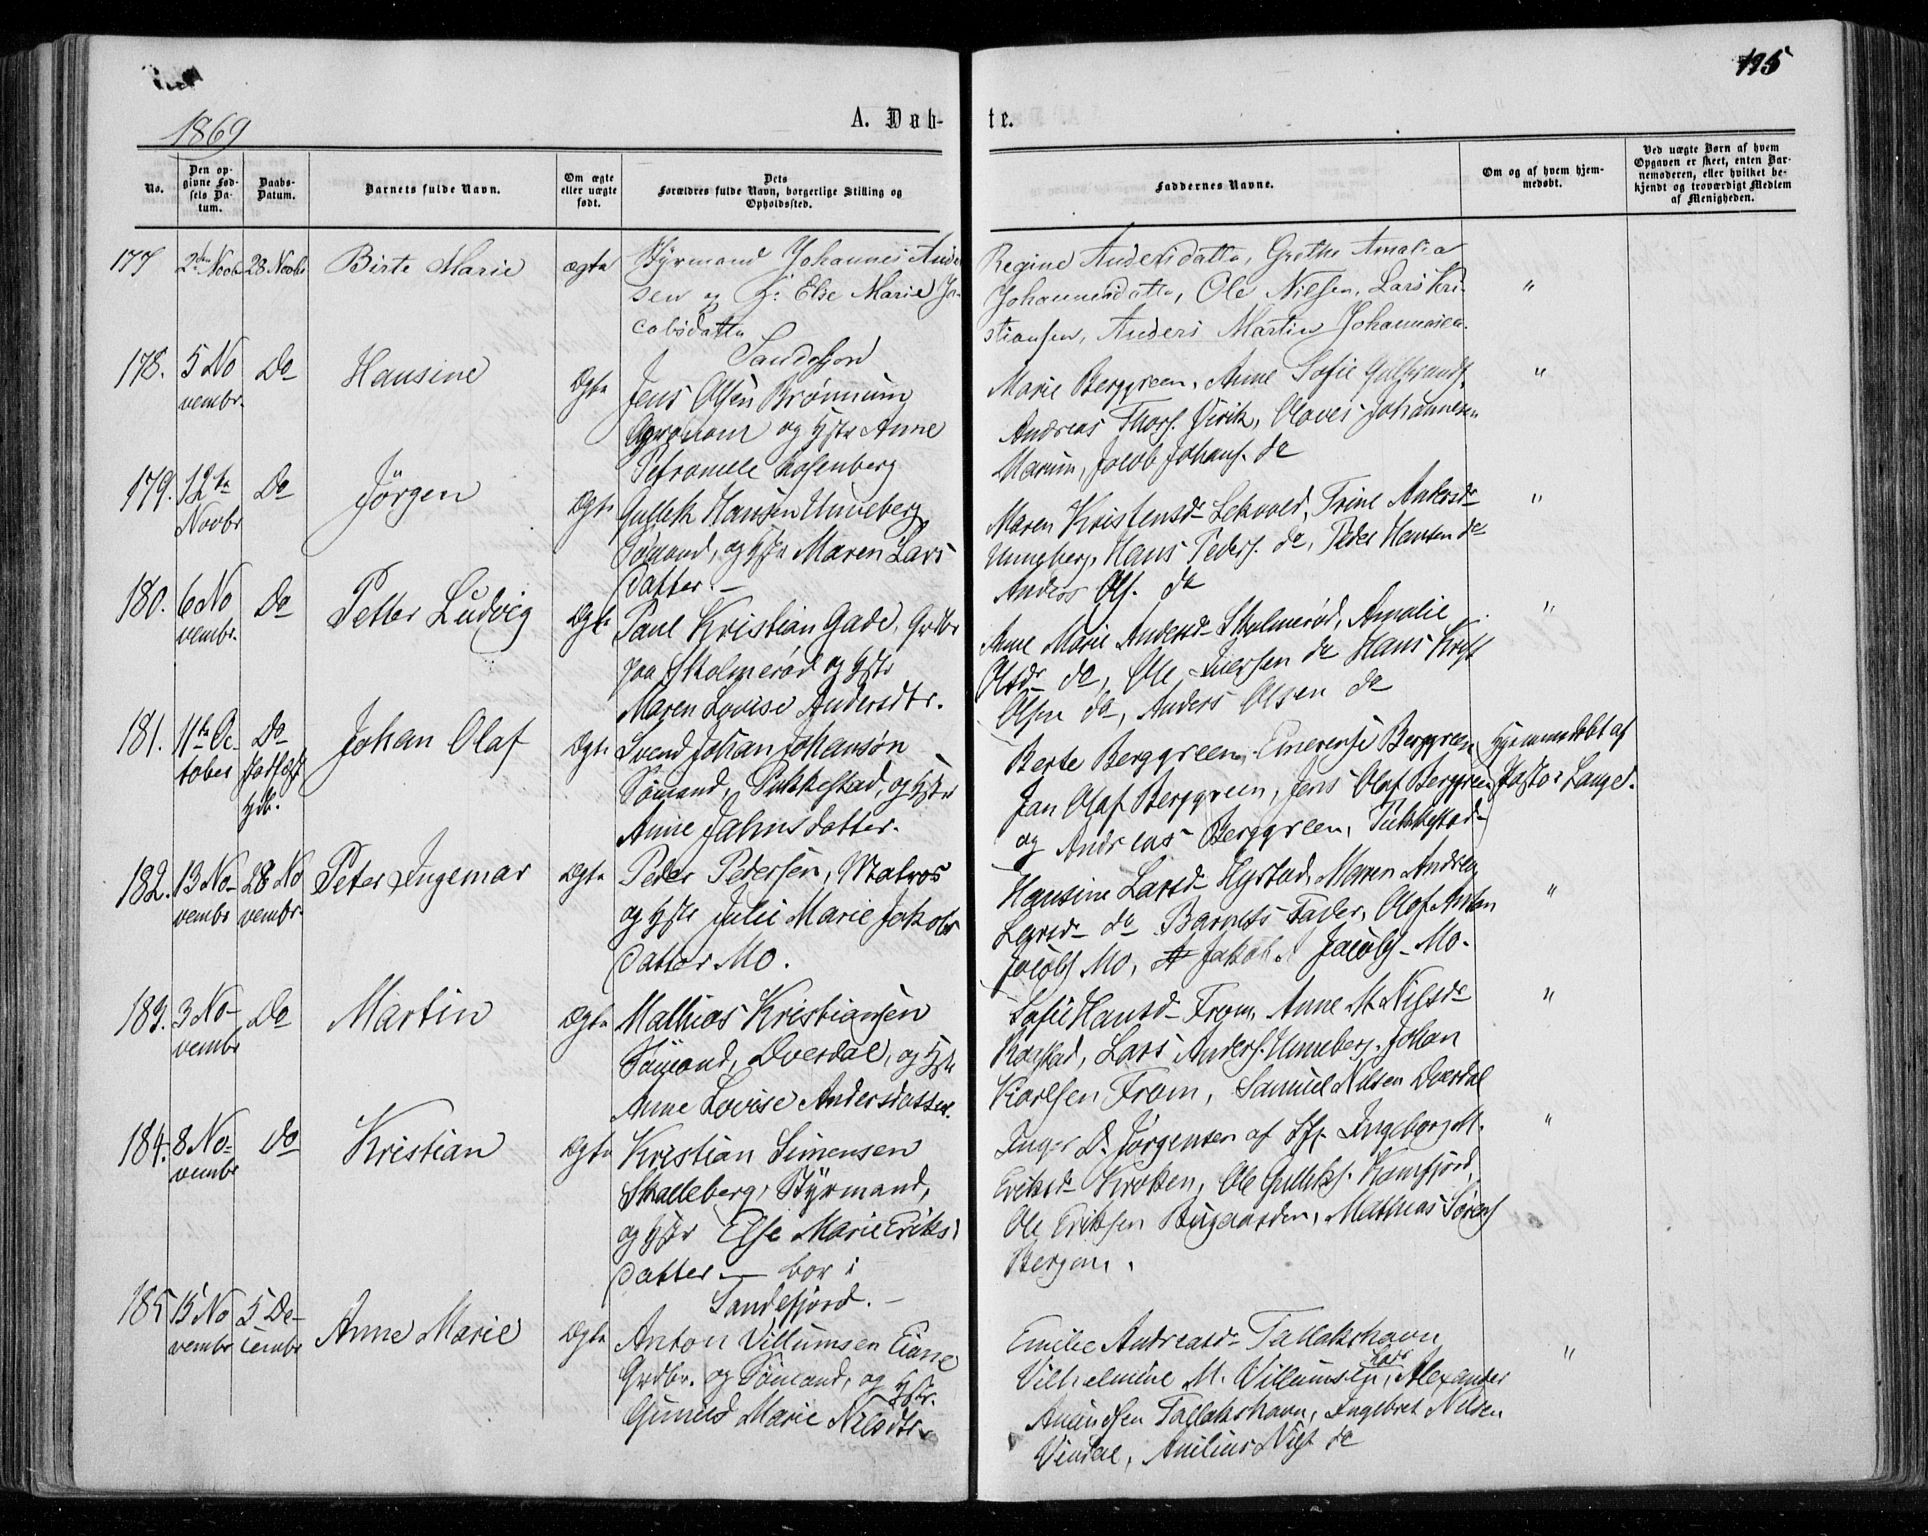 195
1869
A. Døb-
te.
No.
Den op-
givne Fød-
sels Da-
tum.
Daabs-
Datum.
Barnets fulde Navn.
Om ægte
eller uægte
født.
Dets
Forældres fulde Navn, borgerlige Stilling og
Opholdssted.
Faddernes Navne.
Om og af hvem hjem-
medøbt.
Ved uægte Børn af hvem
Opgaven er skeet, enten Bar-
nemoderen, eller hvilket be-
kjendt og troværdigt Medlem
af Menigheden.
177 2den Novb 28 Novbr Birte Marie ægte
Styrmand Johannes Ander
sen og H: Else Marie Ja-
cobsdatter
Sandefjord
Regine Andersdatter, Grethe Amalia
Johannesdatter, Ole Nilsen, Lars Kri-
stiansen, Anders Martin Johannesen.
"
178. 5 No
vembr. Do Hansine Ægte
Jens Olsen Brönnum
Agronom og Hstr Anne
Petronelle Rosenberg
Marie Berggreen, Anne Sofie Gulbrands.
Andreas Thors. Virik, Olaves Johannesen
Marum, Jacob Johans. do
"
179. 12te
Novbr Do Jörgen Ægte
Gullek Hansen Unneberg
Sömand, og Hstr Maren Lars
datter. —
Maren Kristensdr Lekvold, Trine Andersdr
Unneberg, Hans Peders. do, Peder Hansen do
Anders Ols. do
"
180. 6 No
vembr. Do Petter Ludvig Ægte
Paul Kristian Gade, Grdbr
paa Skolmeröd og Hstr
Maren Lovise Andersdtr.
Anne Marie Andersd- Skolmeröd, Amalie
Olsdr do, Ole Iversen do Hans Krist
Olsen do, Anders Olsen do
"
181. 11te Oc-
tober Do
Johan Olaf Ægte
Svend Johan Johansön
Sömand, Pukkestad, og Hstr
Anne Jahnsdatter.
Berte Berggreen, Emerense Berggreen
Jan Olaf Berggreen, Jens Olaf Berggreen
og Andreas Berggreen, Pukkestad-
Hjemmedøbt af
Pastor Lange.
182. 13 No-
vembr 28 No
vembr. Peter Ingemar Ægte
Peder Pedersen, Matros
og Hstr Julie Marie Jakobs
datter Mo.
Hansine Larsd- Hystad, Maren Andrea
Larsd- do Barnets Fader, Olaf Anton
Jacobs Mo, Jakob A Jacobs- Mo.
"
183. 3 No-
vembr Do Martin Ægte
Mathias Kristiansen
Sömand, Overdal, og Hstr
Anne Lovise Andersdatter.
Sofie Hansd- From, Anne M. Nilsdr
Kastad, Lars Anders. Unneberg, Johan
Karlsen From, Samuel Nilsen Overdal
"
184. 8 No-
vembr Do Kristian Ægte
Kristian Simensen
Skalleberg, Styrmand,
og Hstr Else Marie Eriks-
datter — bor i
Sandefjord. —
Inger D. Jörgensen af Sfj. Ingeborg M.
Eriksd- Kroken, Ole Gulliks. Kamfjord,
Ole Eriksen Bugaarden, Mathias Sörens
Bergan.
"
185 15 No
vembr 5 De-
cembr Anne Marie Ægte
Anton Villumsen Eiane
Grdbr. og Sömand, og Hstr.
Gunild Marie Nilsdtr.
Emilie Andreasd- Tallakshavn
Vilhelmine M. Villumsen, Alexander
Amundsen Tallakshavn, Ingebret Nilsen
Vindal, Anilius Nils. do
"